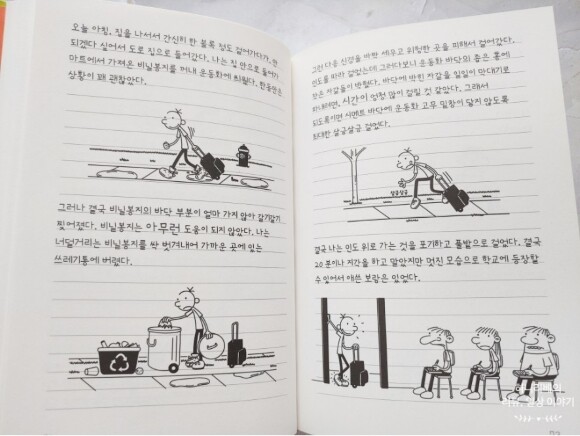 오늘 아침, 집을 나서서 간신히 한 블록 정도 걸어가다가, 안
되겠다 싶어서 도로 집으로 들어갔다. 나는 집 안으로 들어가
마트에서 가져온 비닐봉지를 꺼내 운동화에 씌웠다. 한동안은
상황이 꽤 괜찮았다.
그러나 결국 비닐봉지의 바닥 부분이 얼마 가지 않아 갈기갈기
찢어졌다. 비닐봉지는 아무런 도움이 되지 않았다. 나는
너덜거리는 비닐봉지를 싹 벗겨내어 가까운 곳에 있는
쓰레기통에 버렸다.
그런 다음 신경을 바짝 세우고 위험한 곳을 피해서 걸었다.
인도를 따라 걸었는데 그러다보니 운동화 바닥의 좁은 홈에
작은 자갈들이 박혔다. 바닥에 박힌 자갈을 일일이 맨대기로
파내려면, 시간이 엄청 많이 걸릴 것 같았다. 그래서
되도록이면 시멘트 바닥에 운동화 고무 밑창이 닿지 않도록
최대한 살금살금 걸었다.
살금살금
결국 나는 인도 위로 가는 것을 포기하고 풀밭으로 걸었다. 결국
20분이나 지각을 하고 말았지만 멋진 모습으로 학교에 등장할
수 있어서 애쓴 보람은 있었다.